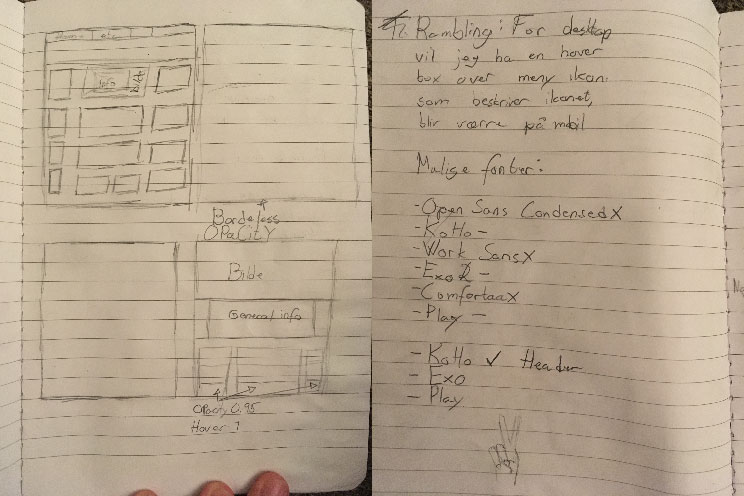 Info
Bilde
Borderless
OPaCitY
Bilde
General info
OPacity 0.95
Hover 1
Rambling: For desktop
vil jeg ha en hover
box over meny ikon.
som beskriver ikonet,
blir værre på mobil
Mulige fonter:
- Open Sans Condensed X
- KoHo -
- Work Sans X
- Exo 2 -
- Comfortaa X
- Play -
- KoHo ✓ Header
- Exo
- Play